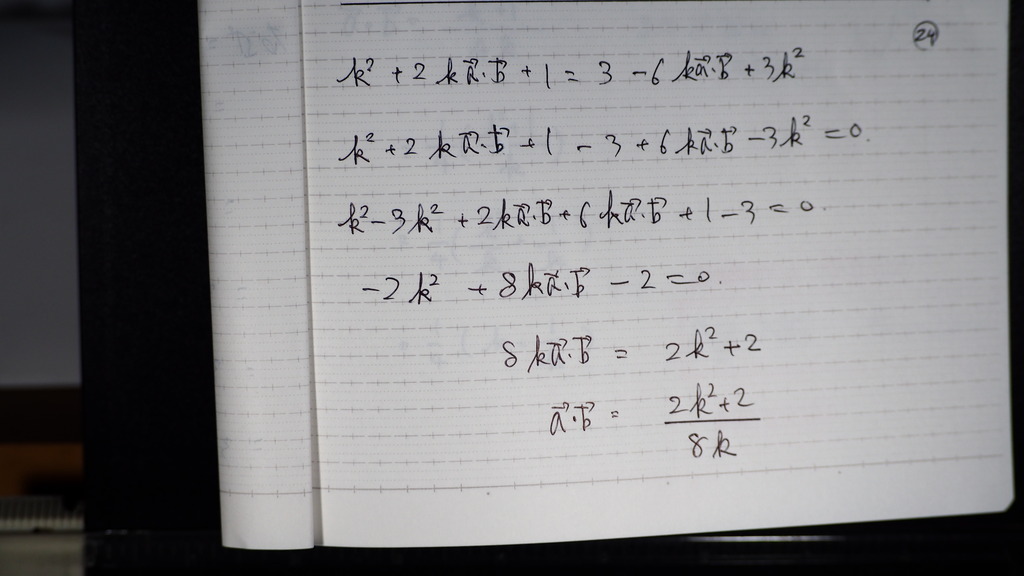 ㉔
k² + 2 k a⃗·b⃗ + 1 = 3 - 6 k a⃗·b⃗ + 3k²
k² + 2 k a⃗·b⃗ + 1 - 3 + 6 k a⃗·b⃗ - 3k² = 0.
k² - 3k² + 2 k a⃗·b⃗ + 6 k a⃗·b⃗ + 1 - 3 = 0.
-2k² + 8 k a⃗·b⃗ - 2 = 0.
8 k a⃗·b⃗ = 2k² + 2
a⃗·b⃗ = (2k² + 2) / 8k